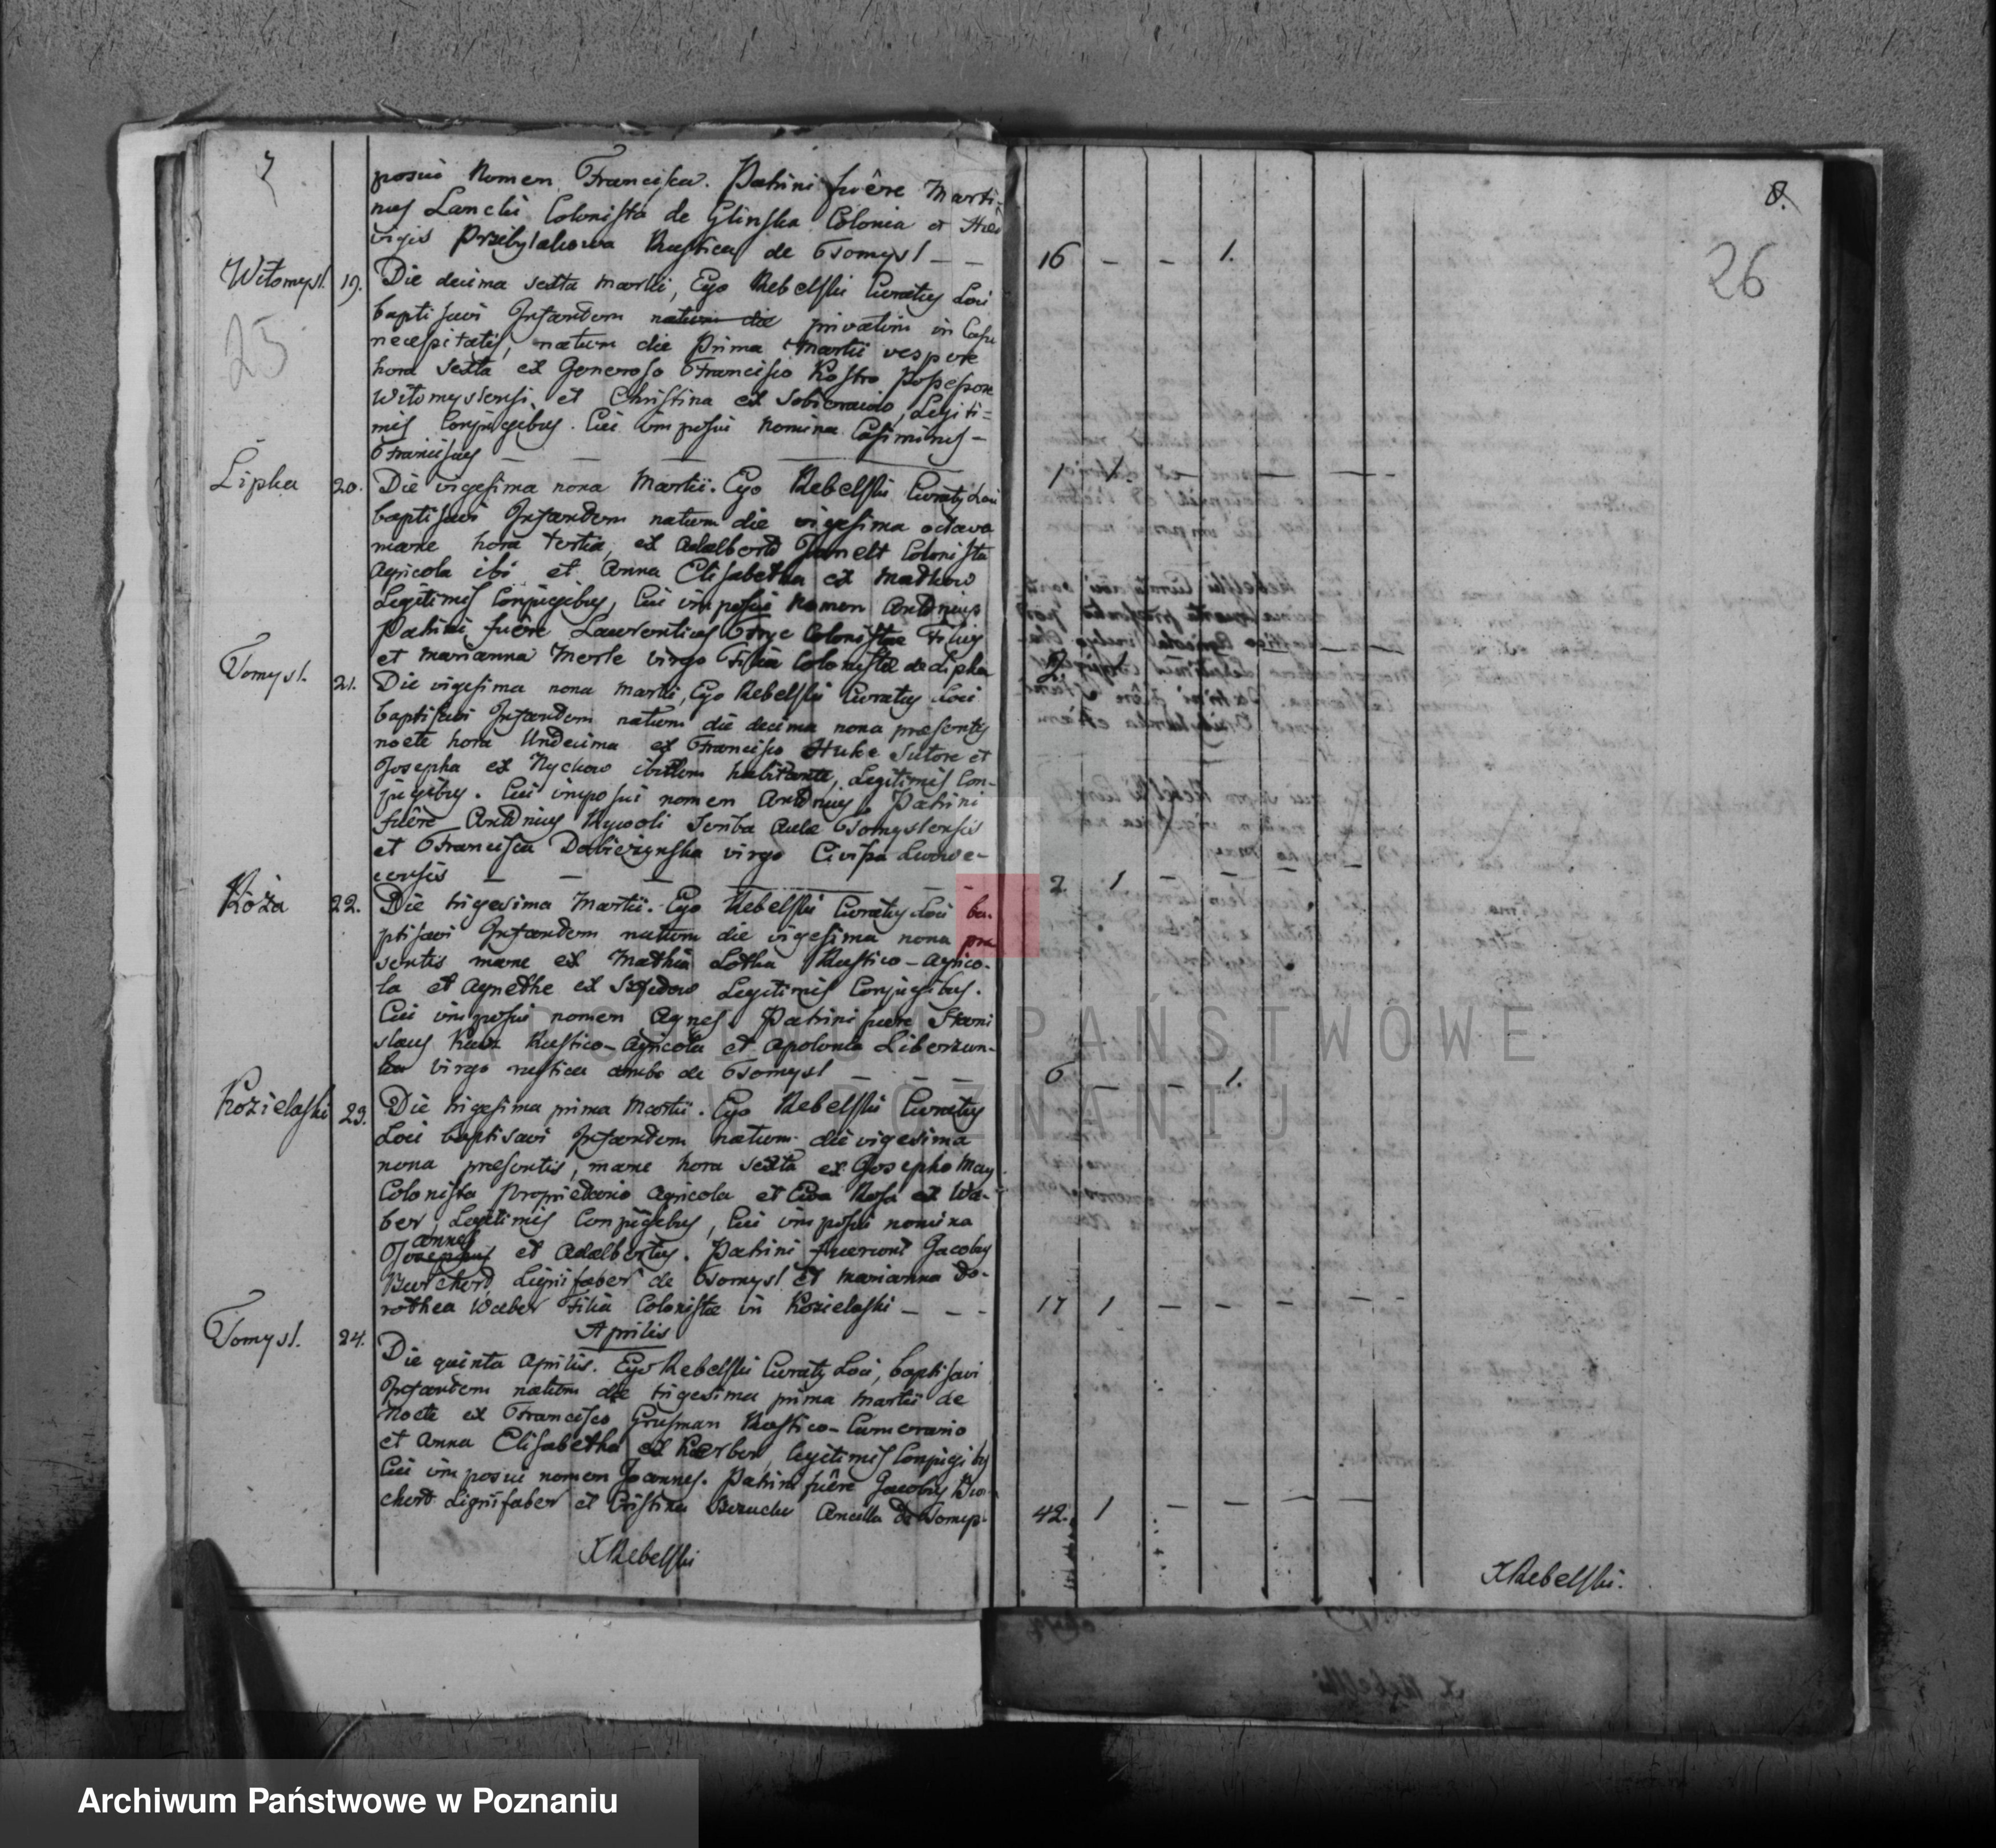 7
posui Nomen Francisca. Patrini fuêre Marti-
nus Lancki Colonista de Glinska Colonia et Hed
vigis Przibylakowa Rustica de Tomysl – –
16 – – 1.
8.
26
Witomysl. 19. Die decima sexta Martii, Ego Rebelski Curatus Loci
25
baptisavi Infantem natum die privatim in Casu
necessitatis, natum die Prima Martii vespere
hora sexta ex Generoso Francisco Rostro Possessore
Witomyslensi, et Christina ex Legiti=
mis Conjugibus. Cui imposui Nomina Casimirus –
Franciscus – – – –
1 1. – – –
Lipka 20. Die vigesima nona Martii. Ego Rebelski Curatus Loci
baptisavi Infantem natum die vigesima octava
mane hora tertia, ex Adalberto Janelt Colonista
Agricola ibi et Anna Elisabetha ex Matkow
Legitimis Conjugibus, Cui imposui Nomen Antonius
Patrini fuêre Laurentius Colonistae Filius
et Marianna Merle virgo Filia Colonistae de Lipka
Tomysl. 21. Die vigesima nona Martii, Ego Rebelski Curatus Loci
baptisavi Infantem natum die decima nona praesentis
nocte hora Undecima ex Francisco Huke Sutore et
Josepha ex Nychow ibidem habitante, Legitimis Con-
jugibus. Cui imposui nomen Antonius. Patrini
fuêre Antonius Rywoli Scriba Aulae Tomyslensis
et Francisca Dobiezynska virgo Civissa Lwowe-
censis – – –
2 1 – – – –
Róża 22. Die trigesima Martii. Ego Rebelski Curatus Loci ba-
ptisavi Infantem natum die vigesima nona prae
sentis mane ex Mathia Lotka Rustico-Agrico-
la et Agnethe ex Legitimis Conjugibus.
Cui imposui nomen Agnes. Patrini fuere Stani
slaus Kuek Rustico-Agricola et Apolonia Liberzun-
ka virgo rustica ambo de Tomysl – – –
6 – – 1.
Kozielaski 23. Die trigesima prima Martii. Ego Rebelski Curatus
Loci baptisavi Infantem natum die vigesima
nona praesentis, mane hora sexta ex Josepho May
Colonista Proprietario Agricola et Eva Rosa ex We-
ber, Legitimis Conjugibus, Cui imposui nomina
annes
Josephus et Adalbertus. Patrini fuerunt Jacobus
Burcherd Lignifaber de Tomysl et Marianna Do-
rothea Weber Filia Colonistae in Kozielaski – – –
17 1 – – – – –
Aprilis
Tomysl. 24. Die quinta Aprilis. Ego Rebelski Curatus Loci, baptisavi
Infantem natum die trigesima prima Martii de
Nocte ex Francisco Grusman Rustico-Cmerario
et Anna Elisabetha ex Kaerber, legitimis Conjugibus
Cui imposui nomen Joannes. Patrini fuêre Jacobus Bur
cherd Lignifaber et Cristina Ancilla de Tomys-
42. 1 – – – –
XRebelski
XRebelski.
ARCHIWUM PAŃSTWOWE
W POZNANIU
Archiwum Państwowe w Poznaniu